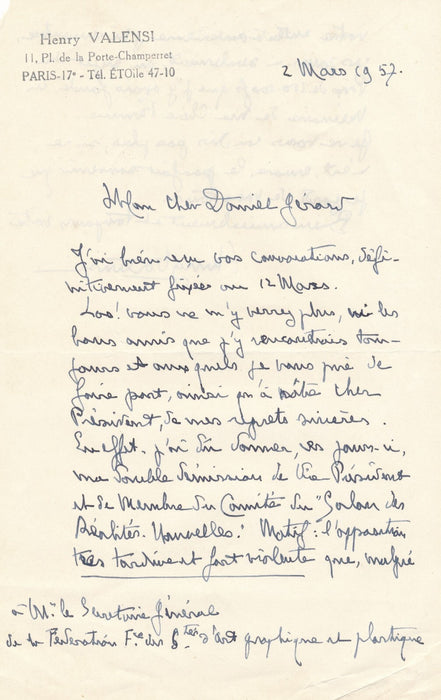 Henry VALENSI
11, Pl. de la Porte-Champerret
PARIS-17e - Tél. ÉTOile 47-10
2 Mars 1957.
Mon cher Daniel Gérard
J'ai bien reçu vos convocations, défi-
nitivement fixées au 12 Mars.
Las! vous ne m'y verrez plus, ni les
bons amis que j'y rencontrais tou-
jours et auxquels je vous prie de
faire part, ainsi qu'à notre cher
Président, de mes regrets sincères.
En effet, j'ai dû donner, ces jours-ci,
ma double démission de Vice Président
et de Membre du Comité du "Salon des
Réalités-Nouvelles." Motif: l'opposition
très tardivent fort violente que, malgré
à Mr. le Secrétaire Général
de la Fédération Fse des Stés d'art graphique et plastique